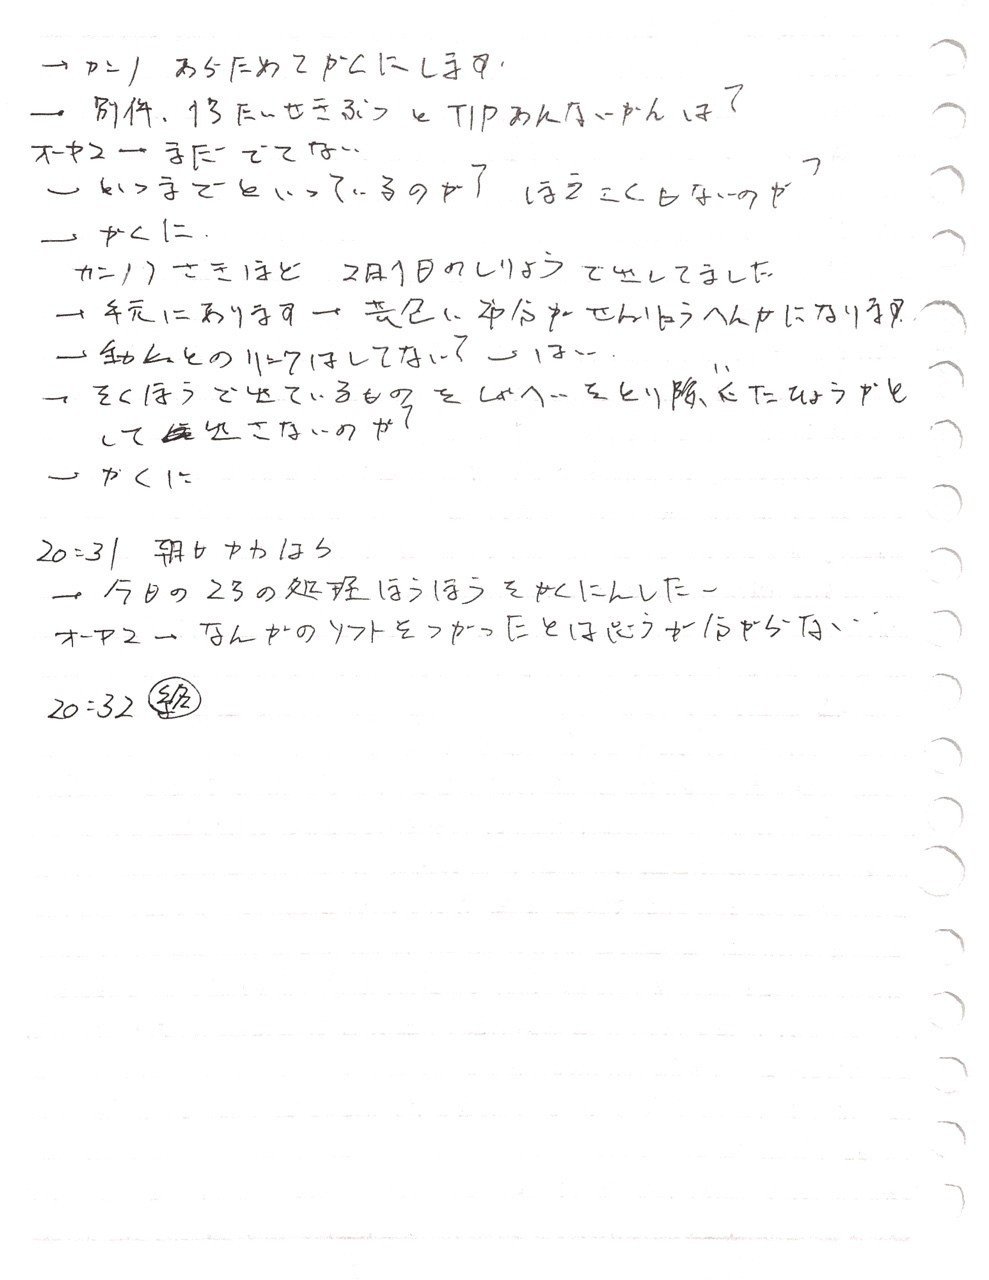 → カンノ あらためてかくにします.
→ 別件、1号たいせきぶつとTIPあんないかんは?
オーヤマ → まだでてない
→ いつまでといっているのか? ほうこくもないのか?
→ かくに.
カンノ) さきほど 2月1日のしりょうで出してました
→ 手元にあります → 黄色い部分がせんりょうへんかになります.
→ 動画とのリンクはしてない? → はい.
→ そくほうで出ているものをしゃへいをとり除いたひょうかと
して 出さないのか?
→ かくに
20:31 朝日 かわはら
→ 今日の23の処理ほうほうをかくにんしたー
オーヤマ → なんかのソフトをつかったとは思うが分からない
20:32 終